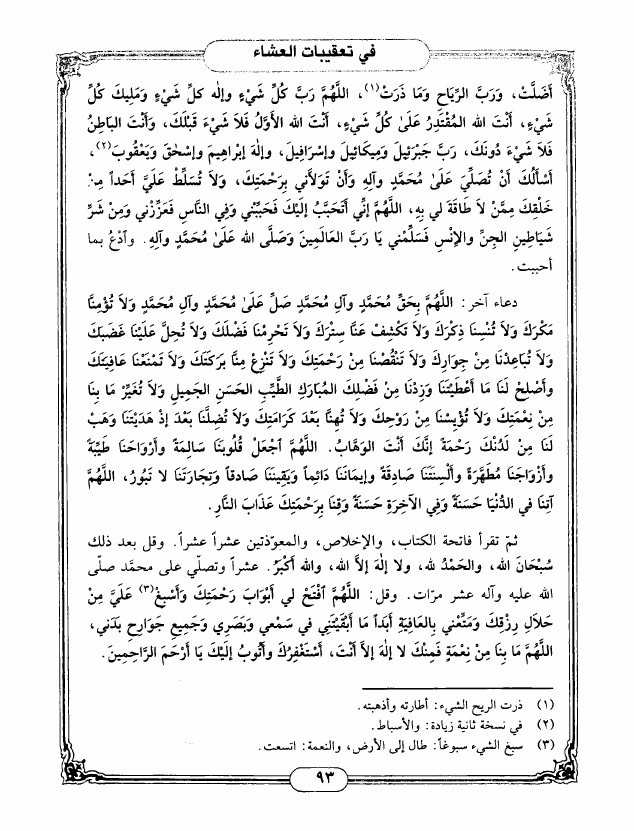 في تعقيبات العشاء
أَضَلَّتْ، وَرَبَّ الرِّيَاحِ وَمَا ذَرَتْ(١)، اللَّهُمَّ رَبَّ كُلِّ شَيْءٍ وإِلٰه كلِّ شَيْءٍ وَمَلِيكَ كُلِّ
شَيْءٍ، أَنْتَ الله المُقْتَدِرُ عَلَىٰ كُلِّ شَيْءٍ، أَنْتَ الله الأَوَّلُ فَلَا شَيْءَ قَبْلَكَ، وَأَنْتَ البَاطِنُ
فَلَا شَيْءَ دُونَكَ، رَبَّ جَبْرَئِيلَ وَمِيكَائِيلَ وإِسْرَافِيلَ، وإِلٰهَ إِبْراهِيمَ وإِسْحٰقَ وَيَعْقُوبَ(٢)،
أَسْأَلُكَ أَنْ تُصَلِّيَ عَلَىٰ مُحَمَّدٍ وآلِهِ وَأَنْ تَوَلاَّنِي بِرَحْمَتِكَ، وَلَا تُسَلِّطْ عَلَيَّ أَحَداً مِنْ
خَلْقِكَ مِمَّنْ لاَ طَاقَةَ لي بِهِ، اللَّهُمَّ إِنِّي أَتَحَبَّبُ إِلَيْكَ فَحَبِّبْنِي وَفِي النَّاسِ فَعَزِّزْنِي وَمِنْ شَرِّ
شَيَاطِينِ الجِنِّ والإِنْسِ فَسَلِّمْنِي يَا رَبَّ العَالَمِينَ وَصَلَّى الله عَلَىٰ مُحَمَّدٍ وآلِهِ. وأدْعُ بما
أحببت.
دعاء آخر: اللَّهُمَّ بِحَقِّ مُحَمَّدٍ وآلِ مُحَمَّدٍ صَلِّ عَلَىٰ مُحَمَّدٍ وآلِ مُحَمَّدٍ وَلاَ تُؤْمِنَّا
مَكْرَكَ وَلاَ تُنْسِنَا ذِكْرَكَ وَلاَ تَكْشِفْ عَنَّا سِتْرَكَ وَلاَ تَحْرِمْنَا فَضْلَكَ وَلاَ تُحِلَّ عَلَيْنَا غَضَبَكَ
وَلاَ تُبَاعِدْنَا مِنْ جِوَارِكَ وَلاَ تَنْقُصْنَا مِنْ رَحْمَتِكَ وَلاَ تَنْزِعْ مِنَّا بَرَكَتَكَ وَلاَ تَمْنَعْنَا عَافِيَتَكَ
وأَصْلِحْ لَنَا مَا أَعْطَيْتَنَا وَزِدْنَا مِنْ فَضْلِكَ المُبَارَكِ الطَّيِّبِ الحَسَنِ الجَمِيلِ وَلاَ تُغَيِّرْ مَا بِنَا
مِنْ نِعْمَتِكَ وَلاَ تُؤْيِسْنَا مِنْ رَوْحِكَ وَلاَ تُهِنَّا بَعْدَ كَرَامَتِكَ وَلاَ تُضِلَّنَا بَعْدَ إِذْ هَدَيْتَنَا وَهَبْ
لَنَا مِنْ لَدُنْكَ رَحْمَةً إِنَّكَ أَنْتَ الوَهَّابُ. اللَّهُمَّ أَجْعَلْ قُلُوبَنَا سَالِمَةً وأَرْوَاحَنَا طَيِّبَةً
وأَزْوَاجَنَا مُطَهَّرَةً وأَلْسِنَتَنَا صَادِقَةً وإِيمَانَنَا دَائِماً وَيَقِيننَا صَادقاً وَتِجَارَتَنَا لا تَبُورُ، اللَّهُمَّ
آتِنَا في الدُّنْيَا حَسَنَةً وَفِي الآخِرَةِ حَسَنَةً وَقِنَا بِرَحْمَتِكَ عَذَابَ النَّارِ.
ثمّ تقرأ فاتحة الكتاب، والإخلاص، والمعوّذتين عشراً عشراً. وقل بعد ذلك
سُبْحَانَ الله، والحَمْدُ لله، ولا إِلٰهَ إلاَّ الله، والله أَكْبَرُ. عشراً وتصلّي على محمّد صلّى
الله عليه وآله عشر مرّات. وقل: اللَّهُمَّ أفْتَحْ لي أَبْوَابَ رَحْمَتِكَ وَأَسْبِغْ(٣) عَلَيَّ مِنْ
حَلاَلِ رِزْقِكَ وَمَتِّعْنِي بِالعَافِيَةِ أَبَداً مَا أَبْقَيْتَنِي في سَمْعِي وَبَصَرِي وَجَمِيعِ جَوَارِحِ بَدَنِي،
اللَّهُمَّ مَا بِنَا مِنْ نِعْمَةٍ فَمِنْكَ لا إِلٰهَ إلاَّ أَنْتَ، أَسْتَغْفِرُكَ وأَتُوبُ إِلَيْكَ يَا أَرْحَمَ الرَّاحِمِينَ.
(١) ذرت الريح الشيء: أطارته وأذهبته.
(٢) في نسخة ثانية زيادة: والأسباط.
(٣) سبغ الشيء سبوغاً: طال إلى الأرض، والنعمة: اتسعت.
٩٣